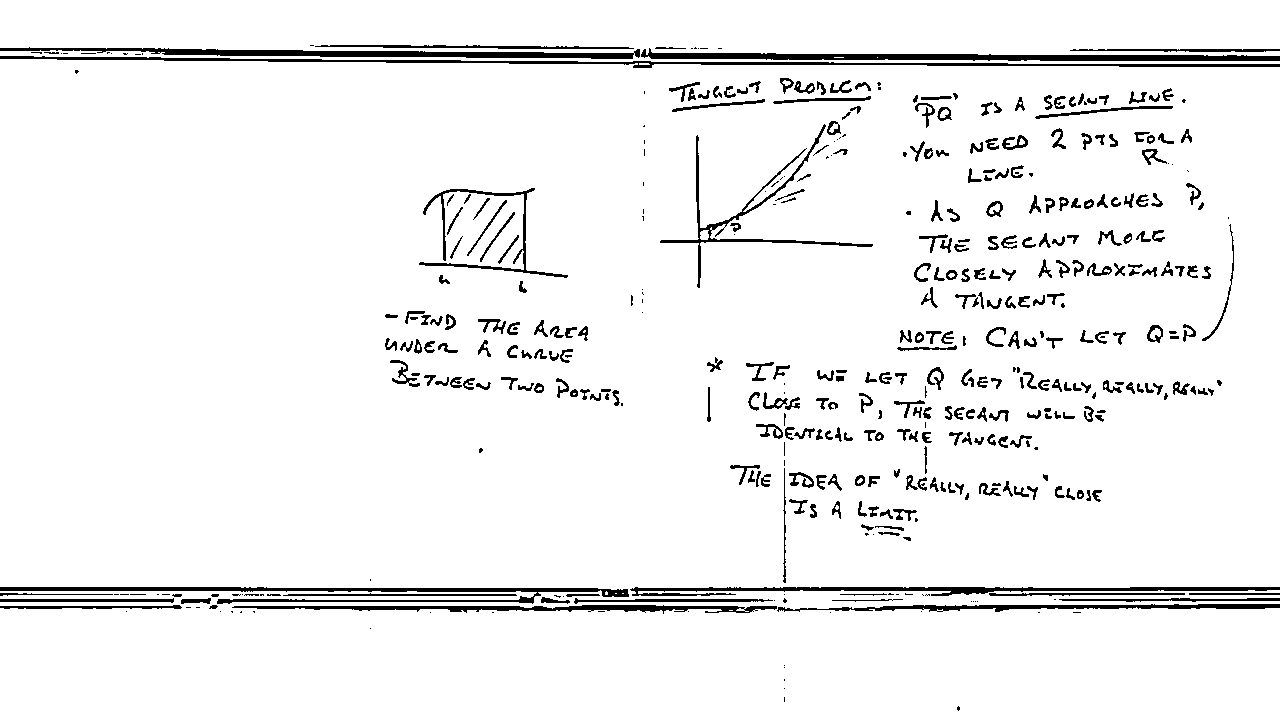 a b
- FIND THE AREA
UNDER A CURVE
BETWEEN TWO POINTS.
TANGENT PROBLEM:
Q
P
"PQ" IS A SECANT LINE.
• YOU NEED 2 PTS FOR A
LINE.
• AS Q APPROACHES P,
THE SECANT MORE
CLOSELY APPROXIMATES
A TANGENT.
NOTE: CAN'T LET Q=P
* IF WE LET Q GET "REALLY, REALLY, REALLY"
CLOSE TO P, THE SECANT WILL BE
IDENTICAL TO THE TANGENT.
THE IDEA OF "REALLY, REALLY" CLOSE
IS A LIMIT.